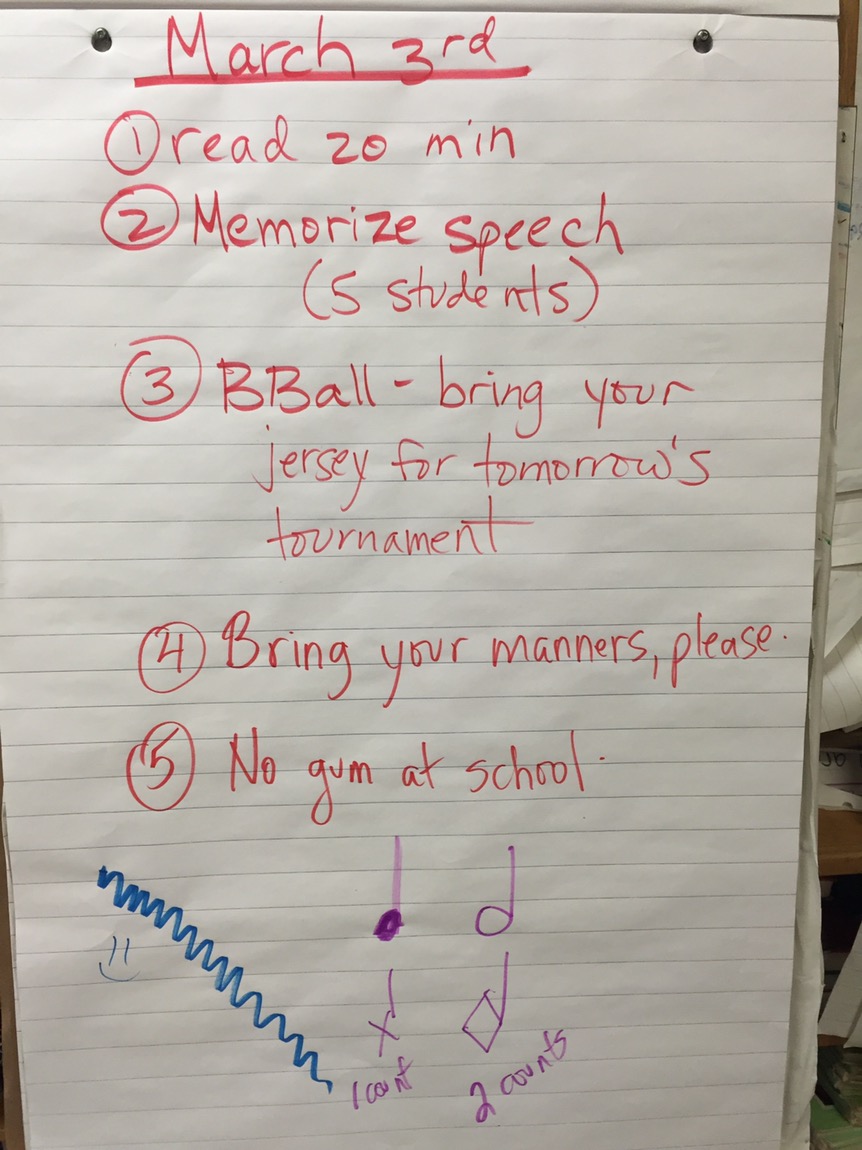 March 3rd
① read 20 min
② Memorize speech
(5 students)
③ BBall - bring your
jersey for tomorrow's
tournament
④ Bring your manners, please.
⑤ No gum at school.
1 count
2 counts